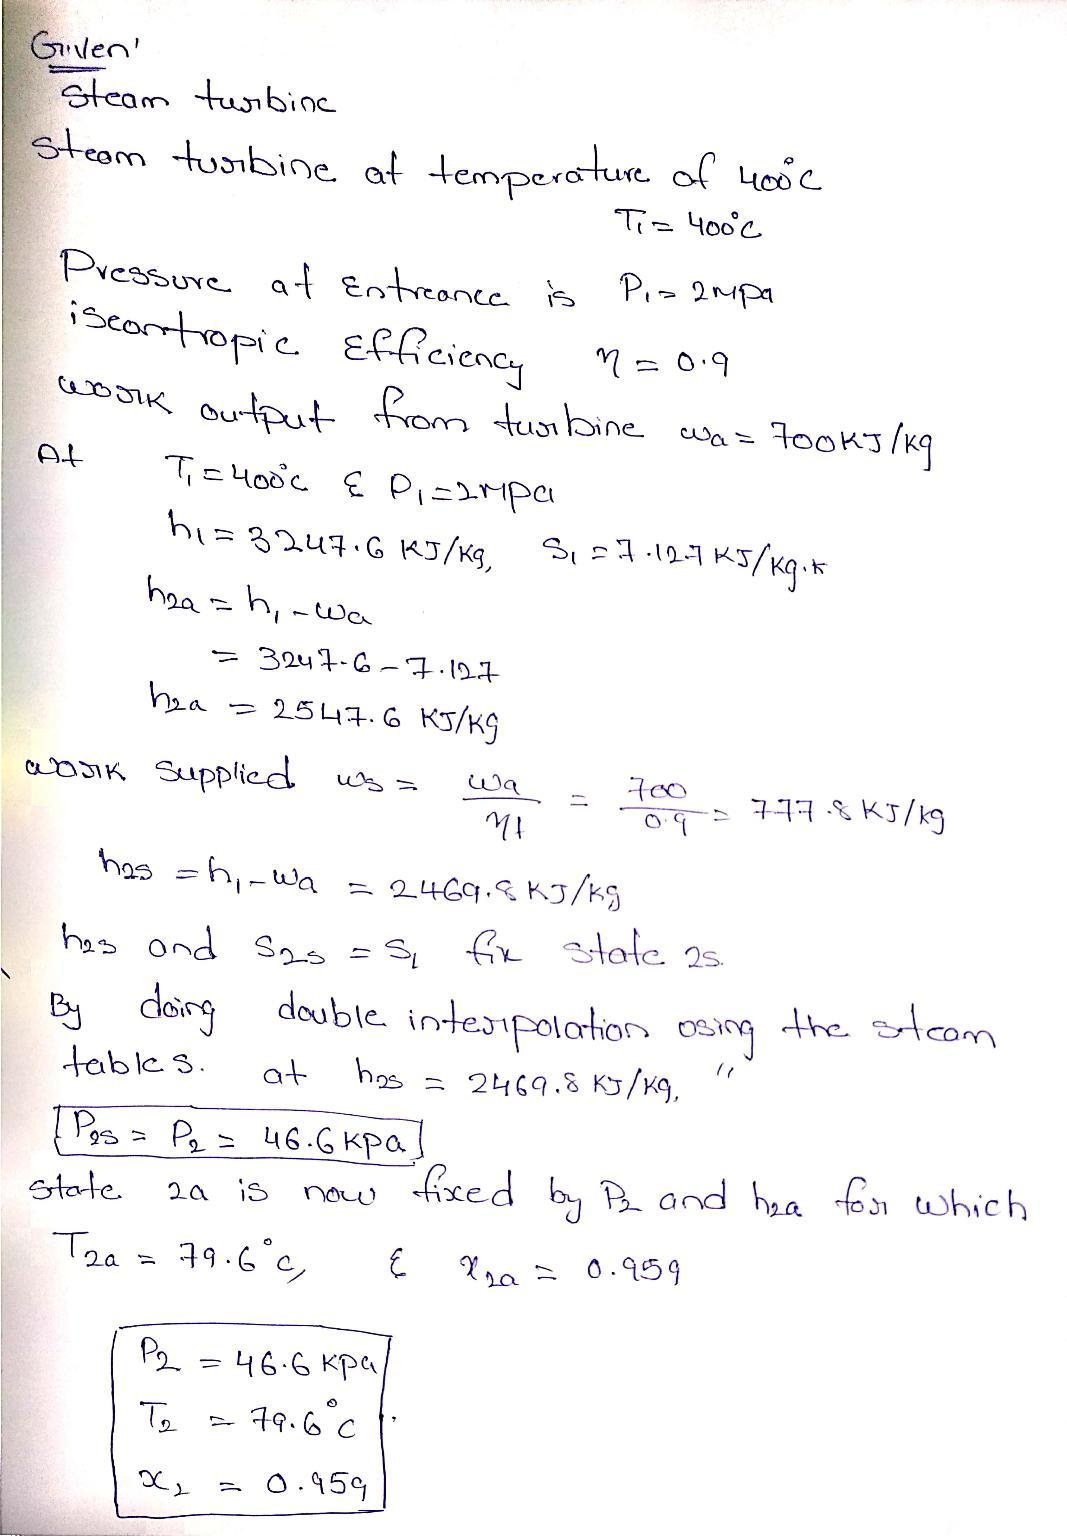 Given'
Steam turbine
Steam turbine at temperature of 400°C
T₁ = 400°C
Pressure at Entreance is P₁ = 2MPa
isearntropic Efficiency η = 0.9
work output from turbine wa = 700KJ/kg
At T₁ = 400°C & P₁ = 2MPa
h₁ = 3247.6 KJ/Kg, S₁ = 7.127 KJ/kg.K
h₂a = h₁ - wa
= 3247.6 - 7.127
h₂a = 2547.6 KJ/Kg
work supplied ws = wa/ηt = 700/0.9 = 777.8 KJ/kg
h₂s = h₁ - wa = 2469.8 KJ/kg
h₂s and S₂s = S₁ fix state 2s.
By doing double interpolation using the steam
tables. at h₂s = 2469.8 KJ/Kg, "
P₂s = P₂ = 46.6 Kpa
state 2a is now fixed by P₂ and h₂a for which
T₂a = 79.6°C, & x₂a = 0.959
P₂ = 46.6 Kpa
T₂ = 79.6°C .
x₂ = 0.959